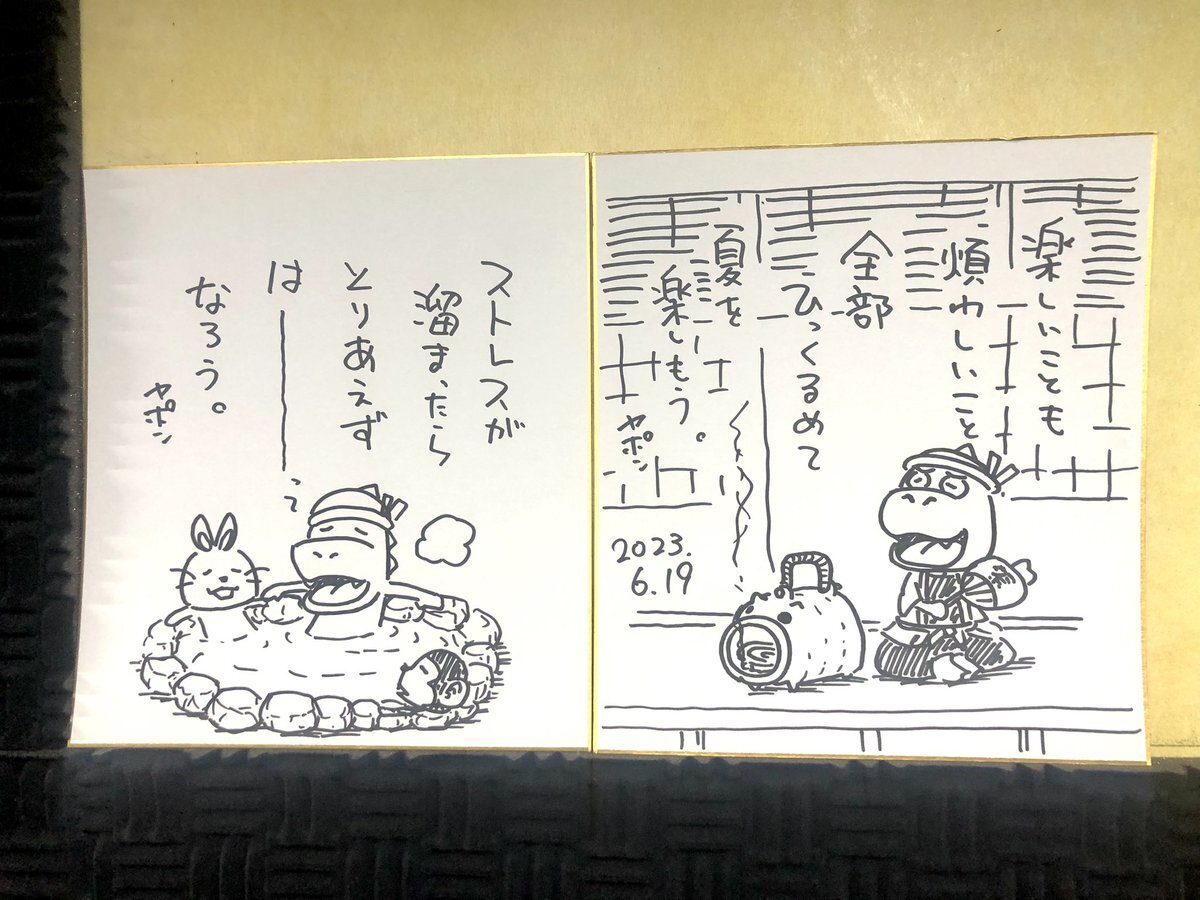 楽しいことも
煩わしいこと
全部
ひっくるめて
夏を
楽しもう。
ヤポン
2023.
6.19
ストレスが
溜まったら
とりあえず
は――――ぅ
なろう。
ヤポン